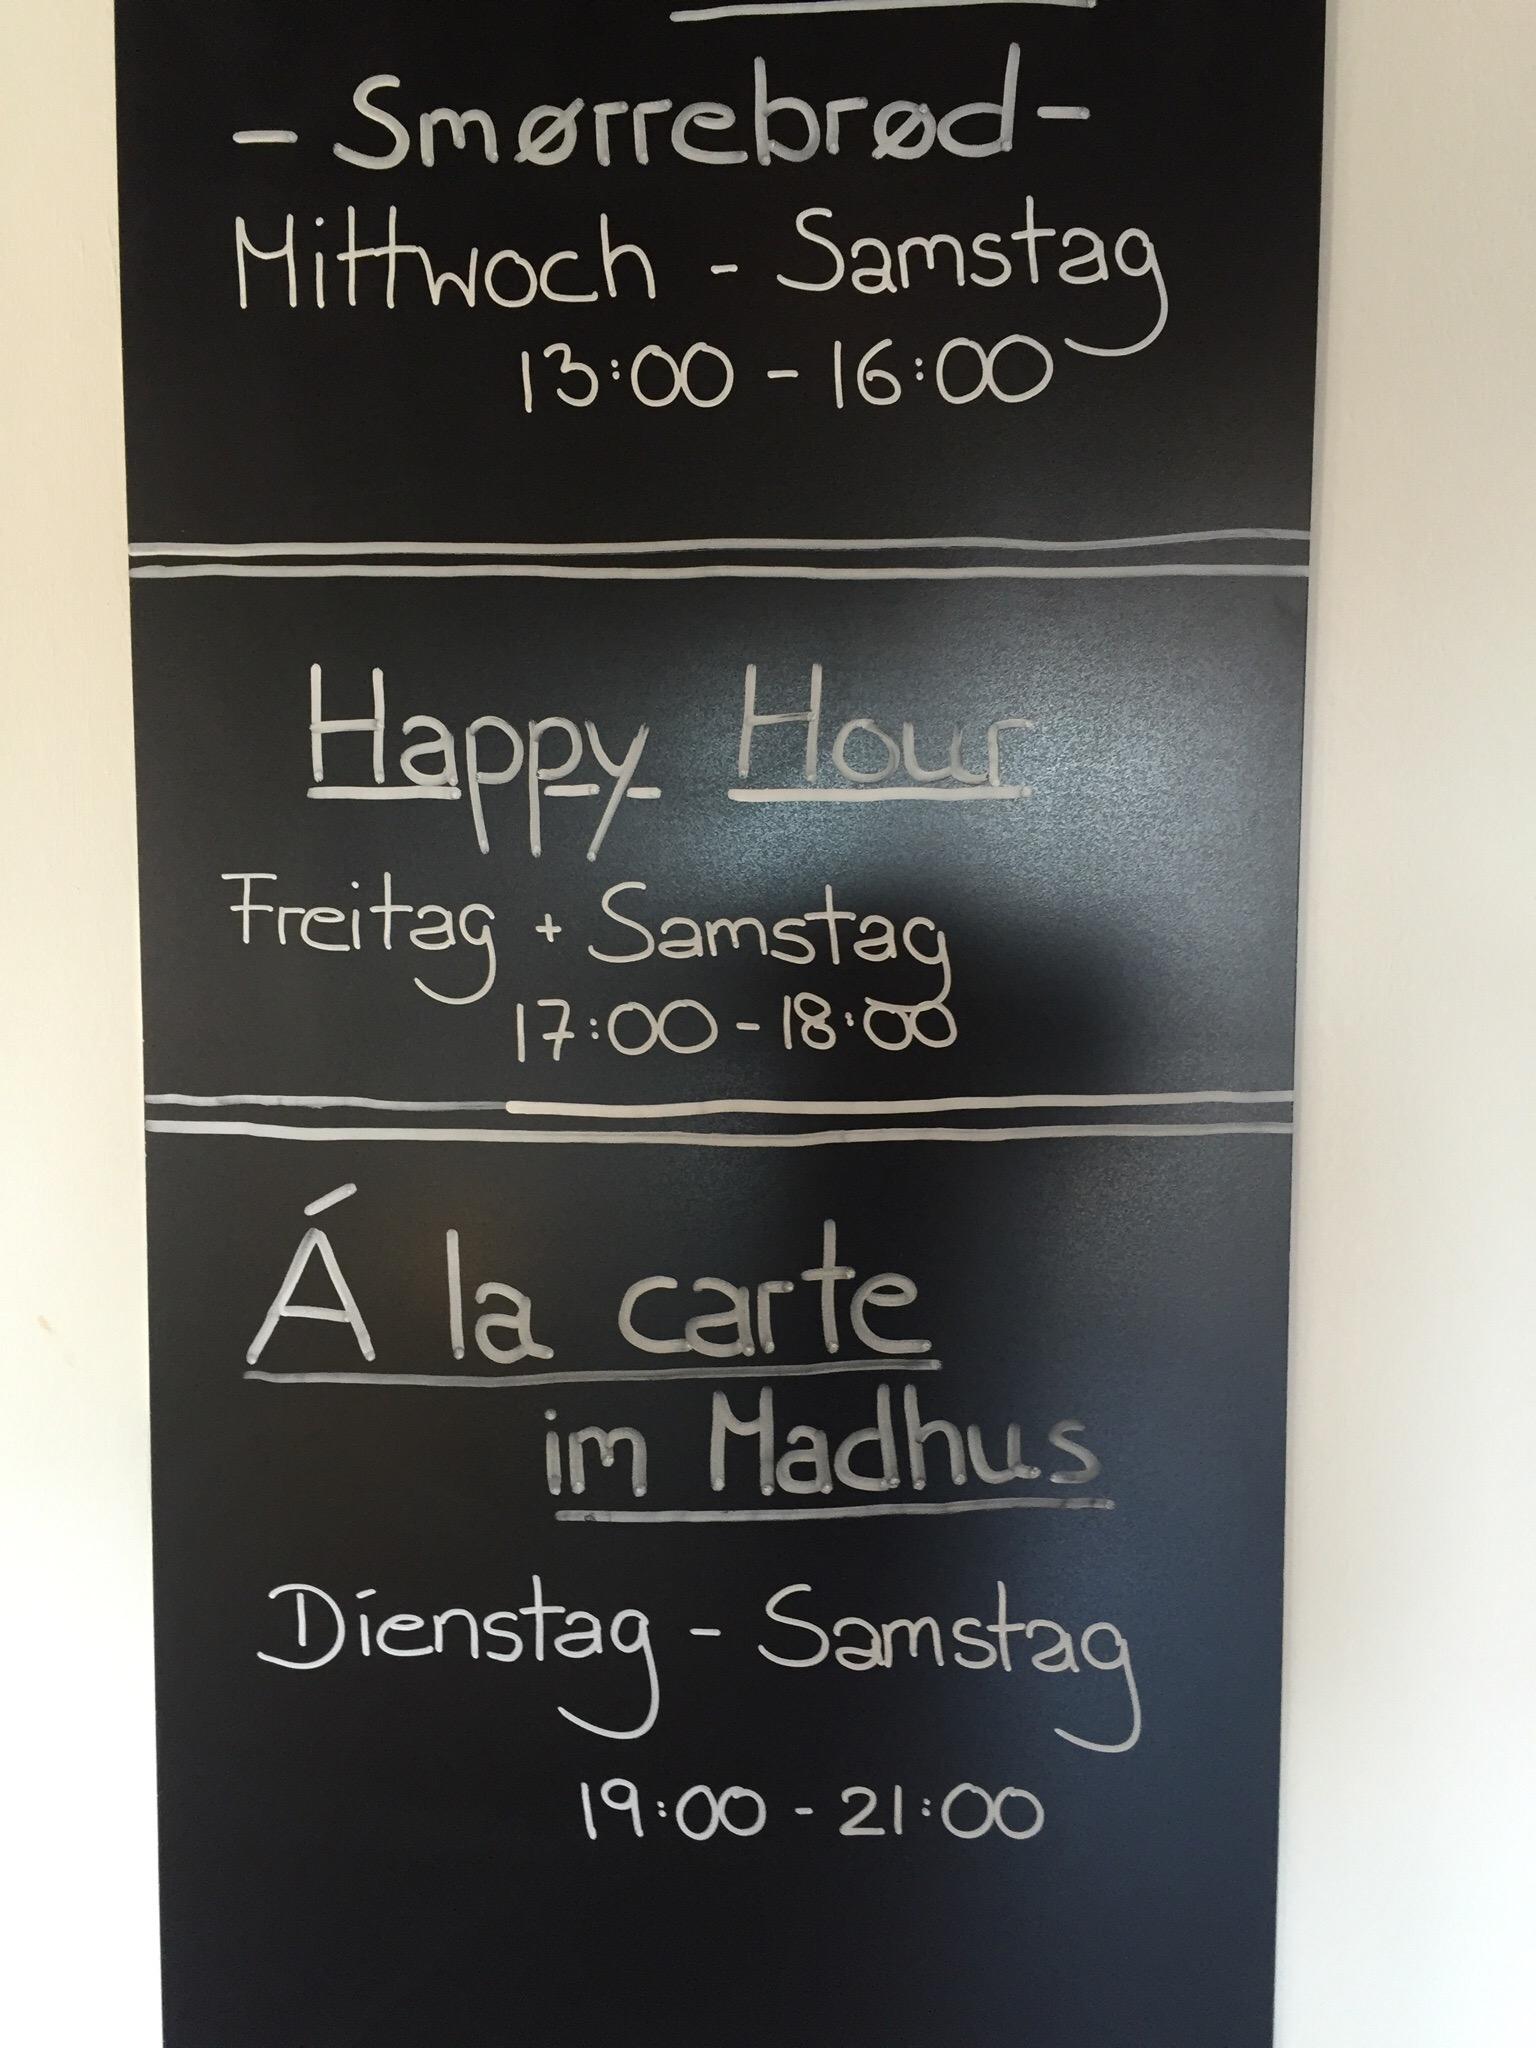 - Smørrebrød -
Mittwoch - Samstag
13:00 - 16:00
Happy Hour
Freitag + Samstag
17:00 - 18:00
Á la carte
im Madhus
Dienstag - Samstag
19:00 - 21:00